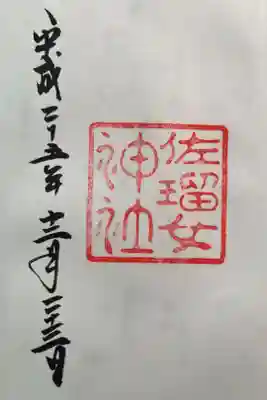 佐瑠女
神社
平成二十五年十二月二十三日